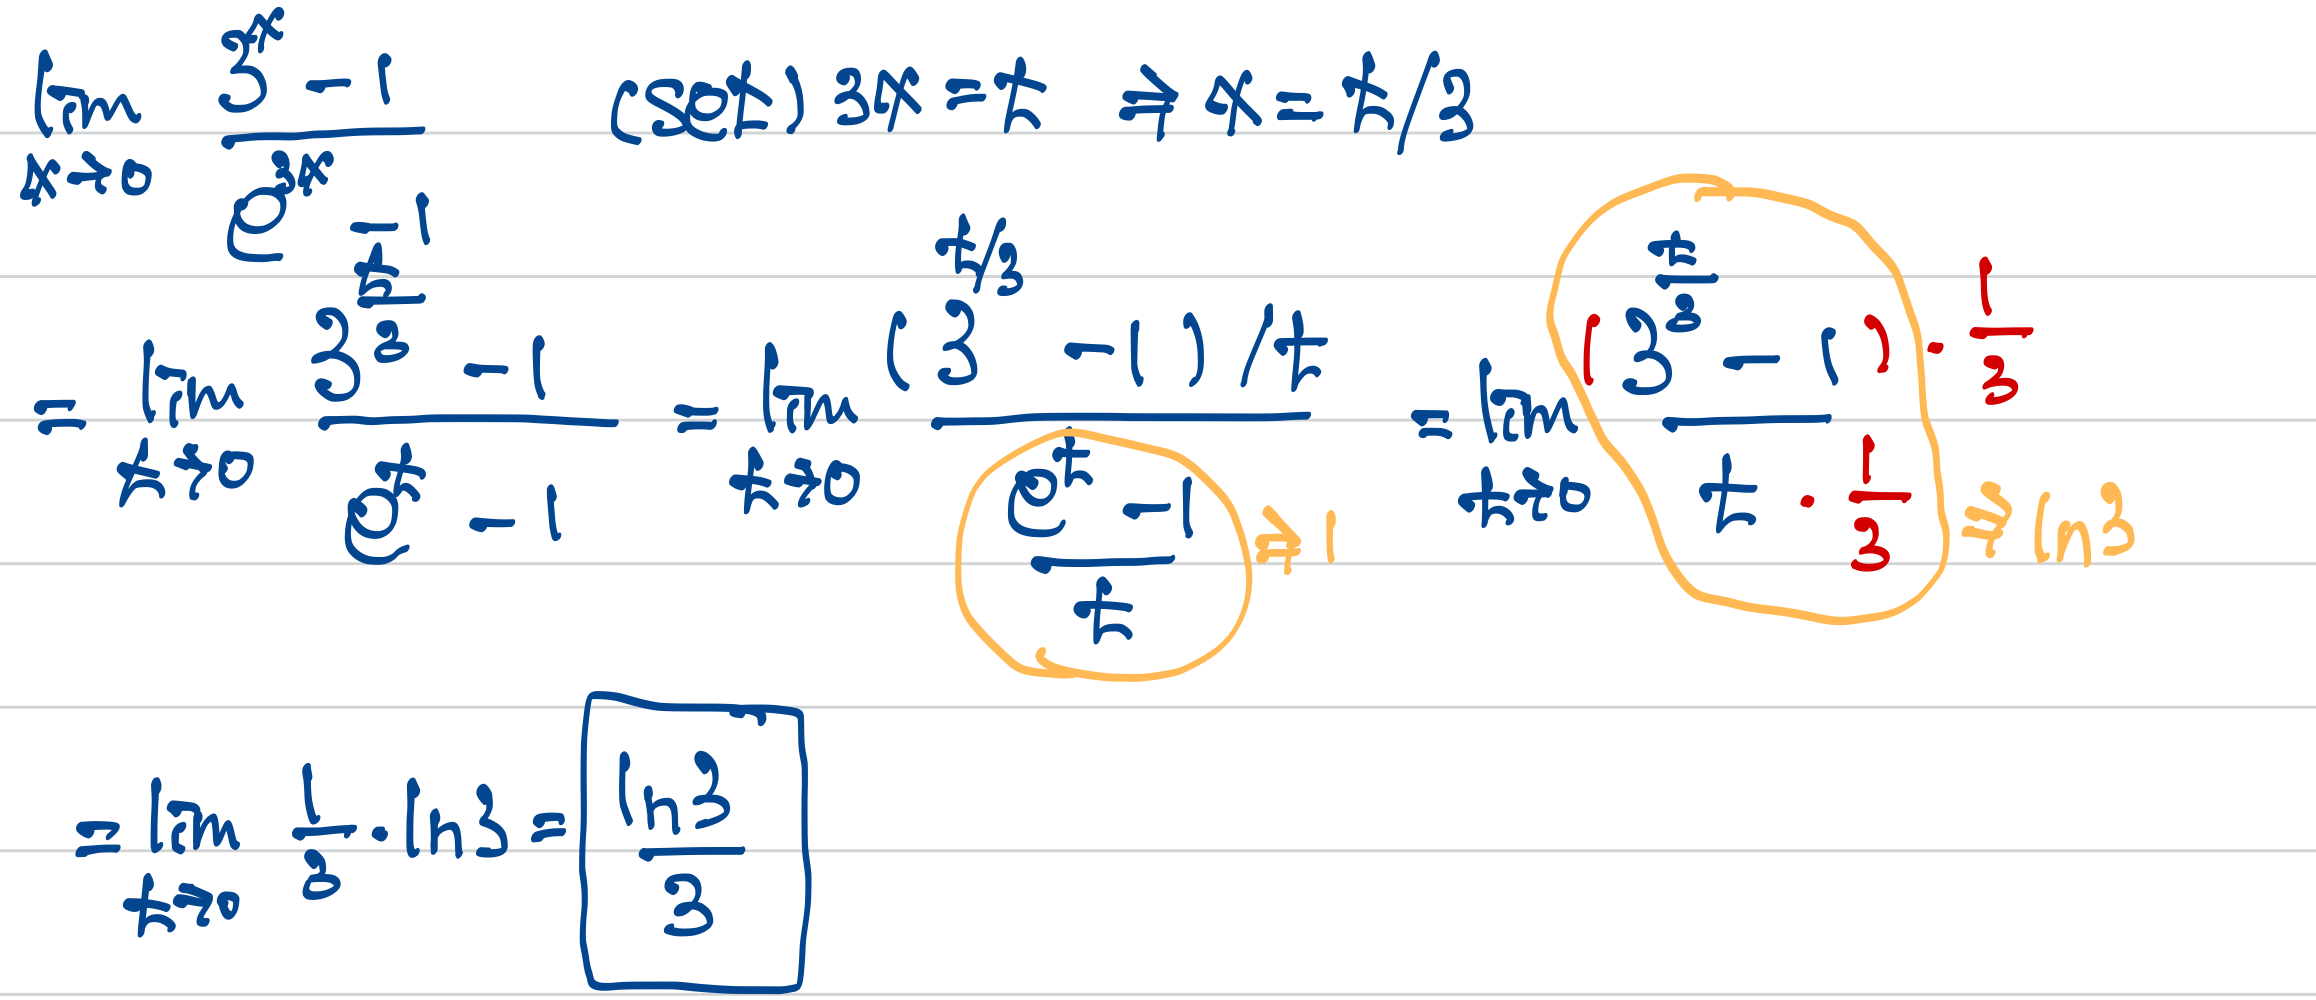 lim_{x→0} (3^x - 1)/(e^{3x} - 1)   (set) 3x = t ⇒ x = t/3
= lim_{t→0} (3^{t/3} - 1)/(e^t - 1) = lim_{t→0} ((3^{t/3} - 1)/t)/((e^t - 1)/t) ⇒ 1 = lim_{t→0} ((3^{t/3} - 1) · 1/3)/(t · 1/3) ⇒ ln3
= lim_{t→0} 1/3 · ln3 = ln3/3